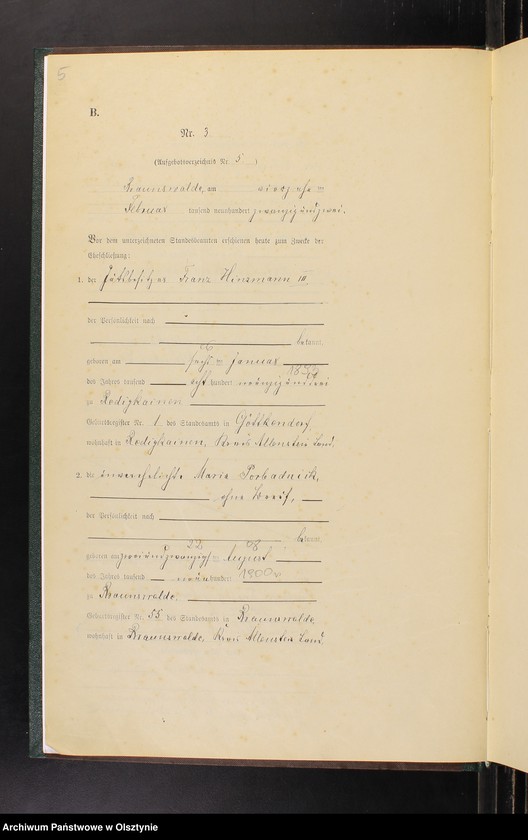 5
B.
Nr. 3
(Aufgebotsverzeichnis Nr. 5)
Braunswalde, am vierzehn
Februar tausend neunhundert zwanzig und zwei.
Vor dem unterzeichneten Standesbeamten erschienen heute zum Zwecke der
Eheschließung:
1. der Gutsbesitzer Franz Hinzmann III
der Persönlichkeit nach
bekannt,
geboren am Januar
des Jahres tausend acht hundert neunzig
zu Redigkainen
Geburtsregister Nr. 1 des Standesamts in Göttkendorf,
wohnhaft in Redigkainen, Kreis Allenstein Land.
2. die unverehelichte Maria Porbadnick,
ohne Beruf,
der Persönlichkeit nach
bekannt,
22 08
geboren am zweiundzwanzigsten August
des Jahres tausend neun hundert 1900
zu Braunswalde,
Geburtsregister Nr. 55 des Standesamts in Braunswalde
wohnhaft in Braunswalde, Kreis Allenstein Land.
Archiwum Państwowe w Olsztynie